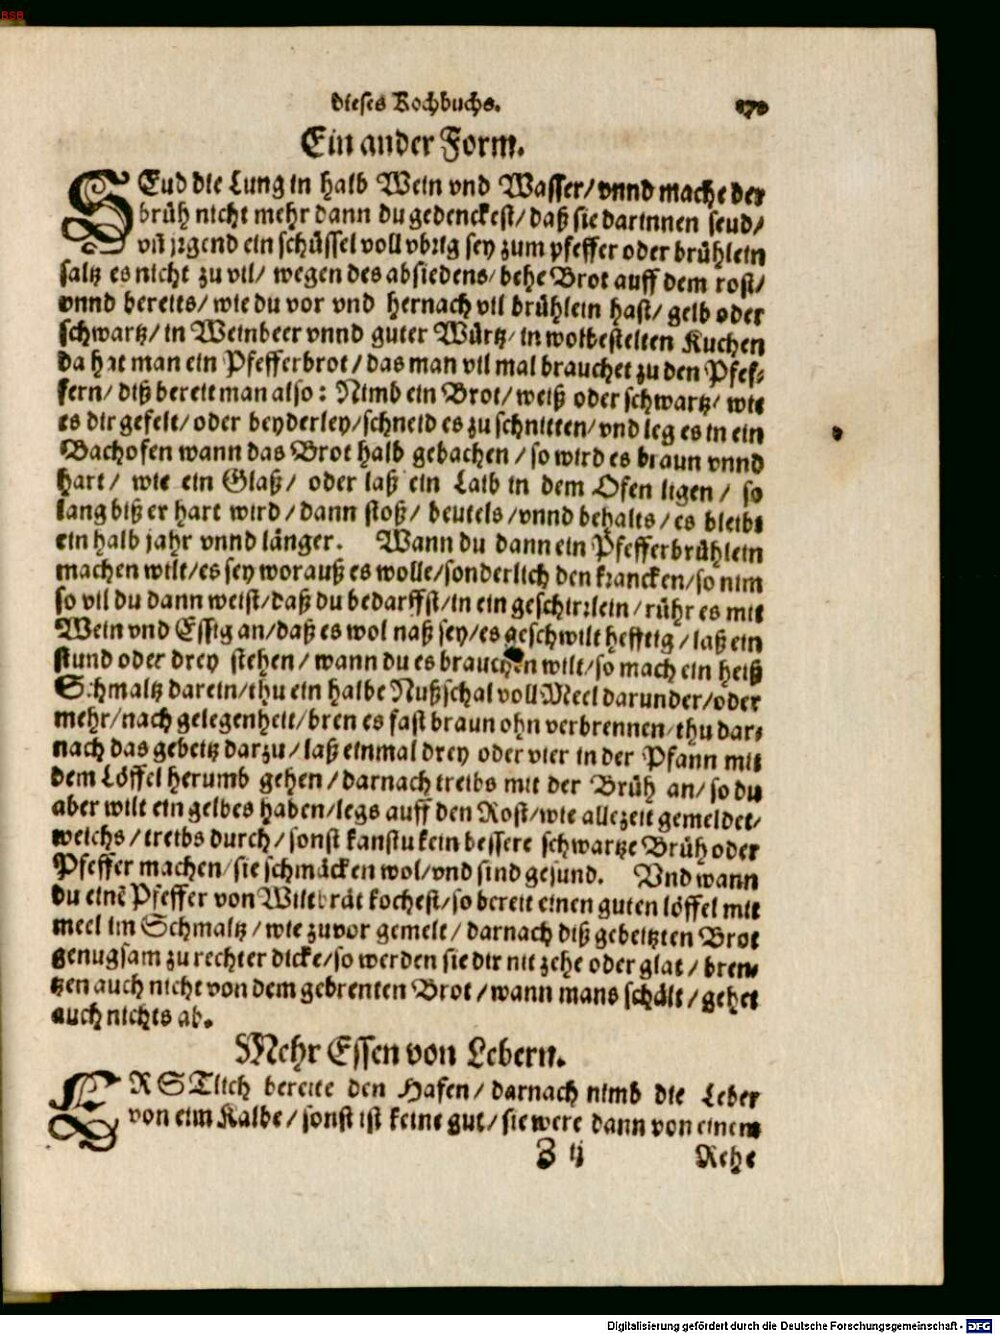 BSB
dieses Kochbuchs.
Ein ander Form.
SEud die Lung in halb Wein vnd Wasser/vnnd mache der
brüh nicht mehr dann du gedenckest/daß sie darinnen seud/
vñ jrgend ein schüssel voll vbrig sey zum pfeffer oder brühlein
saltz es nicht zu vil/ wegen des absiedens/ behe Brot auff dem rost/
vnnd bereits/ wie du vor vnd hernach vil brühlein hast/ gelb oder
schwartz/ in Weinbeer vnnd guter Würtz/ in wolbestelten Kuchen
da hat man ein Pfefferbrot/ das man vil mal brauchet zu den Pfef-
fern/ diß bereit man also: Nimb ein Brot/ weiß oder schwartz/ wie
es dir gefelt/ oder beyderley/schneid es zu schnitten/ vnd leg es in ein
Bachofen wann das Brot halb gebachen / so wird es braun vnnd
hart/ wie ein Glaß/ oder laß ein Laib in dem Ofen ligen / so
lang biß er hart wird / dann stoß/ beutels /vnnd behalts / es bleibt
ein halb jahr vnnd länger. Wann du dann ein Pfefferbrühlein
machen wilt/es sey worauß es wolle/sonderlich den krancken/so nim
so vil du dann weist/daß du bedarffst/in ein geschirrlein / rühr es mit
Wein vnd Essig an/daß es wol naß sey/es geschwilt hefftig / laß ein
stund oder drey stehen / wann du es brauchen wilt/so mach ein heiß
Schmaltz darein/thu ein halbe Nußschal voll Meel darunder/oder
mehr/nach gelegenheit/bren es fast braun ohn verbrennen/thu dar-
nach das gebeitz darzu / laß einmal drey oder vier in der Pfann mit
dem Löffel herumb gehen / darnach treibs mit der Brüh an/ so du
aber wilt ein gelbes haben/legs auff den Rost/wie allezeit gemeldet/
weichs / treibs durch / sonst kanstu kein bessere schwartze Brüh oder
Pfeffer machen/ sie schmäcken wol/vnd sind gesund. Vnd wann
du einẽ Pfeffer von Wiltbrät kochest/so bereit einen guten löffel mit
meel im Schmaltz / wie zuvor gemelt / darnach diß gebeitzten Brot
genugsam zu rechter dicke/so werden sie dir nit zehe oder glat / bren-
tzen auch nicht von dem gebrenten Brot / wann mans schält / gehet
auch nichts ab.
Mehr Essen von Lebern.
ERSTlich bereite den Hafen/ darnach nimb die Leber
von eim Kalbe / sonst ist keine gut/ sie were dann von einem
Z ij Rehe
Digitalisierung gefördert durch die Deutsche Forschungsgemeinschaft - DFG